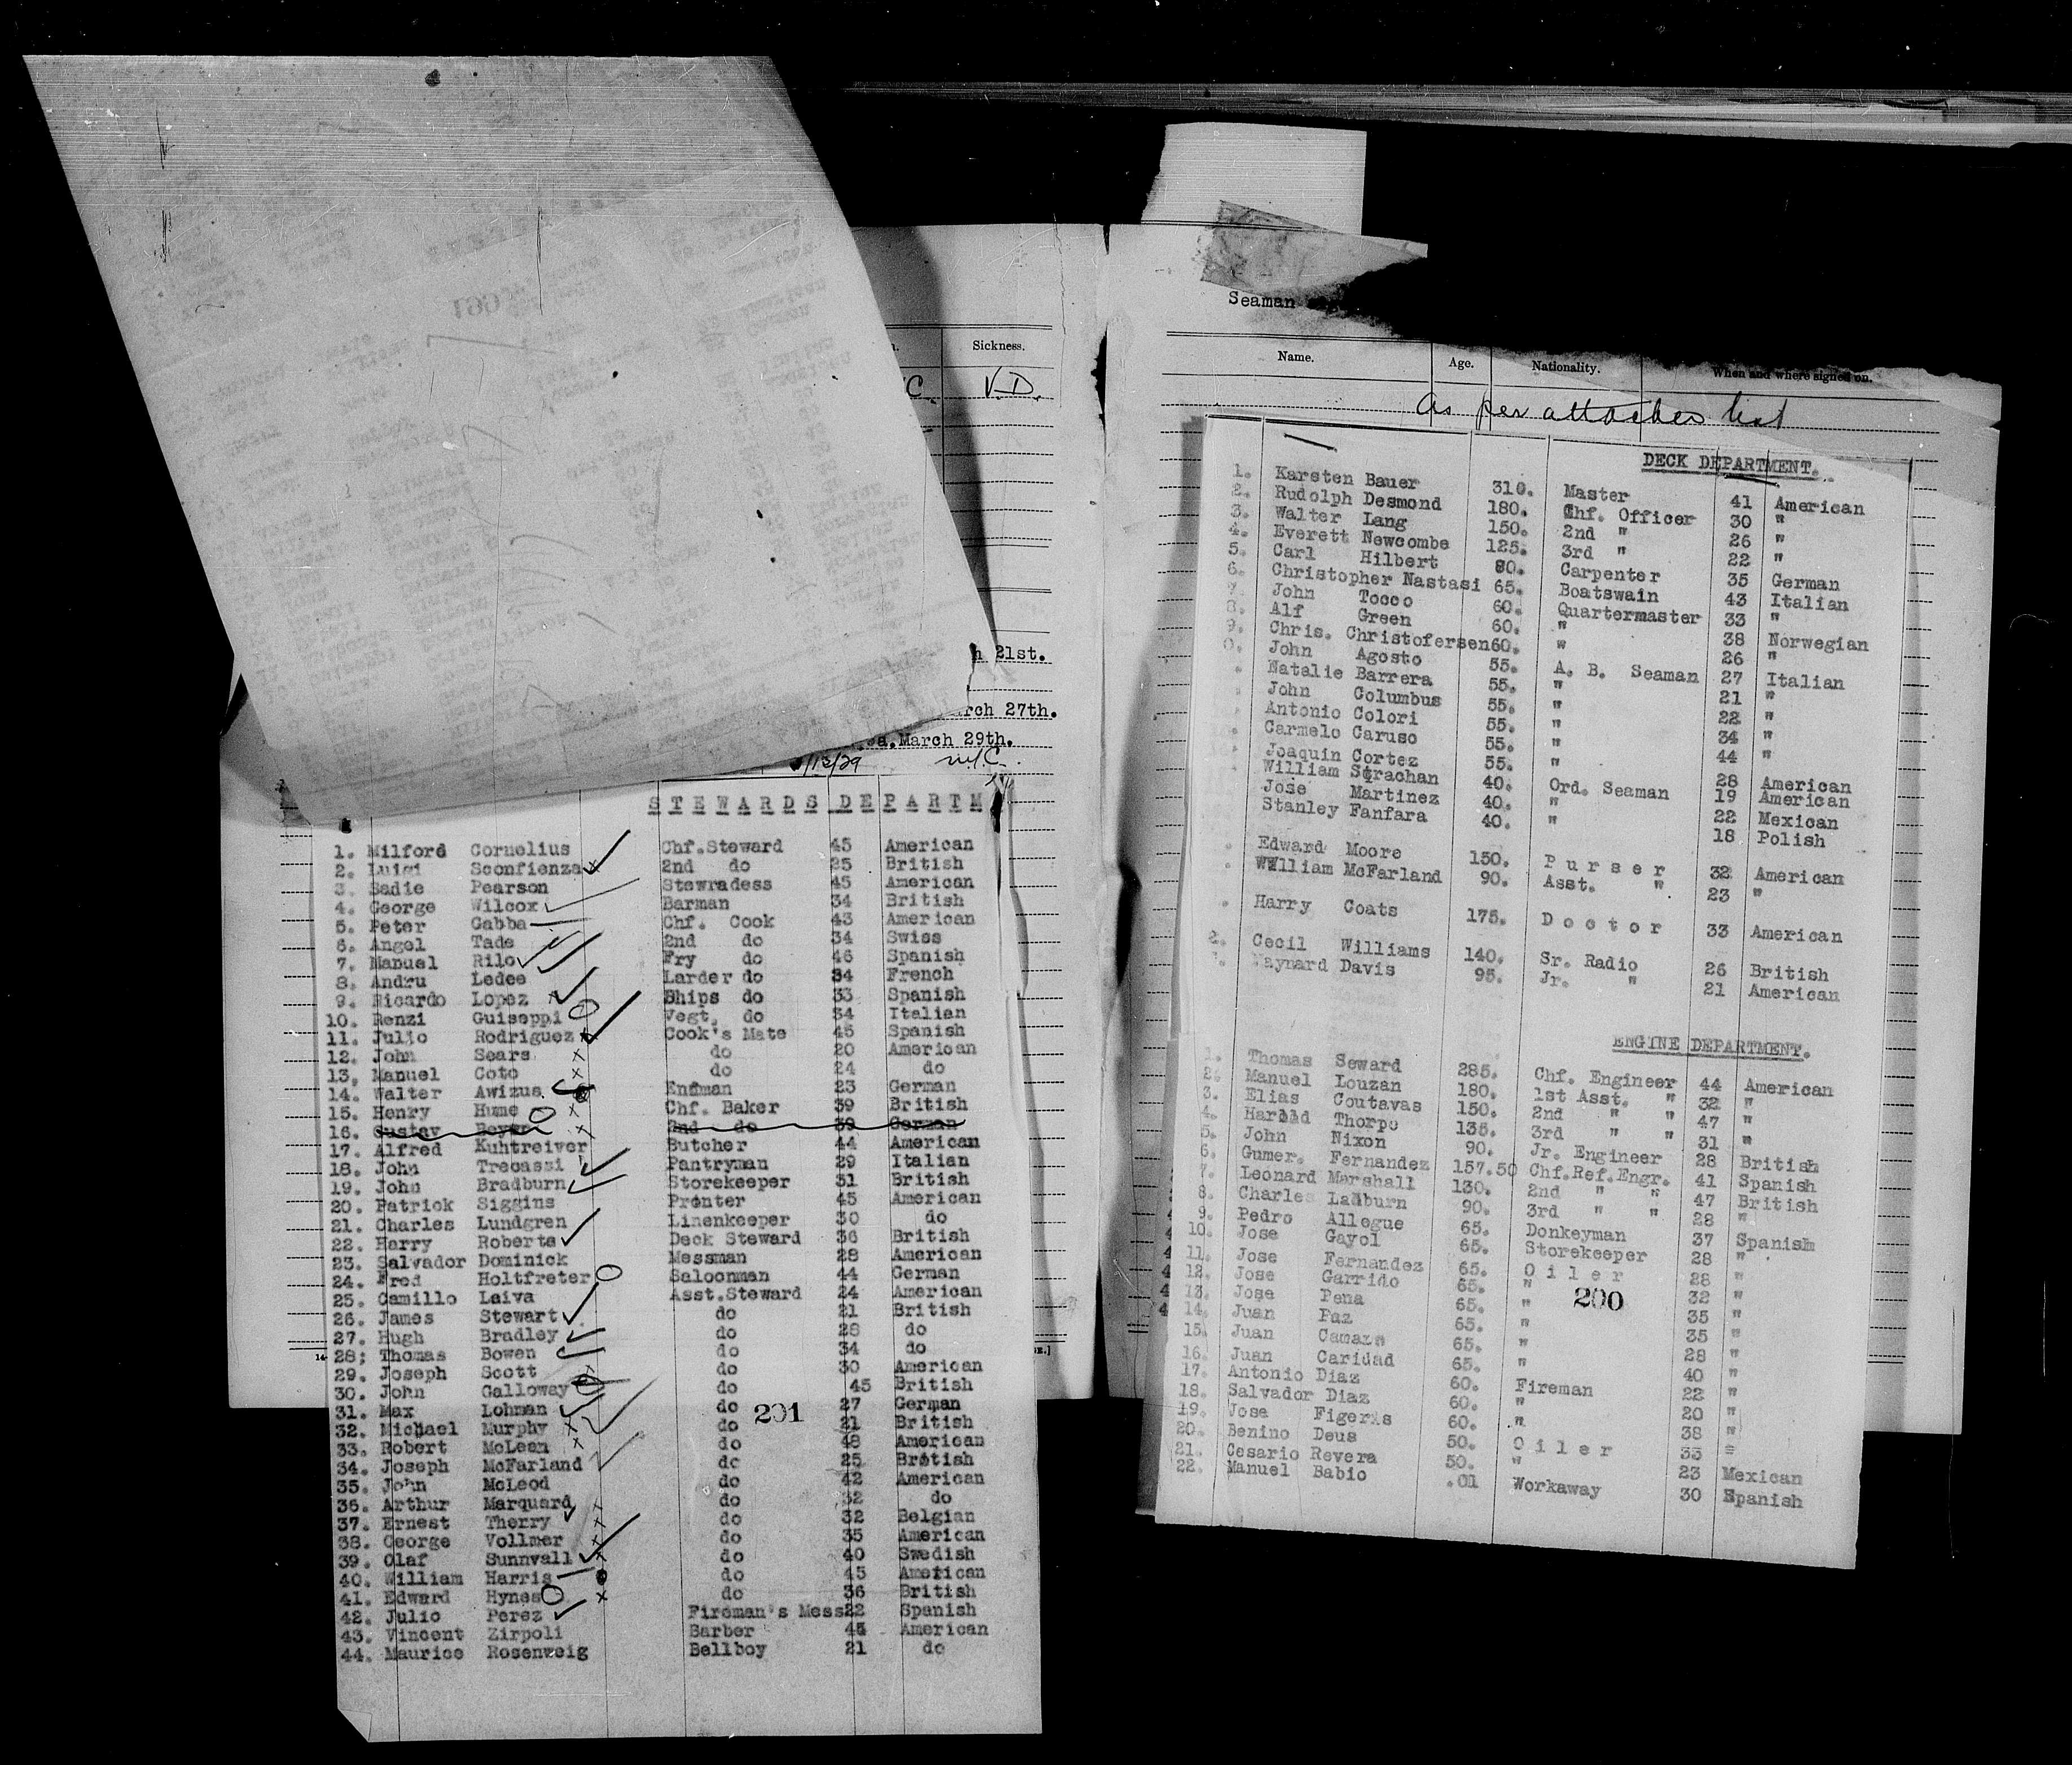 Sickness.
C. V.D.
h 21st.
rch 27th.
a.March 29th.
/13/29 N.Y.C.
STEWARDS DEPARTM
1. Milford Cornelius Chf.Steward 45 American
2. Luigi Sconfienza 2nd do 25 British
3. Sadie Pearson Stewradess 45 American
4. George Wilcox Barman 34 British
5. Peter Gabba Chf. Cook 43 American
6. Angel Tade 2nd do 34 Swiss
7. Manuel Rilo Fry do 46 Spanish
8. Andru Ledee Larder do 34 French
9. Ricardo Lopez Ships do 33 Spanish
10. Renzi Guiseppi Vegt. do 34 Italian
11. Julio Rodriguez Cook's Mate 45 Spanish
12. John Sears do 20 American
13. Manuel Coto do 24 do
14. Walter Awizus. Endman 23 German
15. Henry Hume Chf. Baker 39 British
16. Gustav 2nd do 39 German
17. Alfred Kuhtreiver Butcher 44 American
18. John Trecassi Pantryman 29 Italian
19. John Bradburn Storekeeper 31 British
20. Patrick Siggins Prenter 45 American
21. Charles Lundgren Linenkeeper 30 do
22. Harry Roberts Deck Steward 36 British
23. Salvador Dominick Messman 28 American
24. Fred Holtfreter Saloonman 44 German
25. Camillo Laiva Asst.Steward 24 American
26. James Stewart do 21 British
27. Hugh Bradley do 28 do
28; Thomas Bowen do 34 do
29. Joseph Scott do 30 American
30. John Galloway do 45 British
31. Max Lohman do 27 German
201
32. Michael Murphy do 21 British
33. Robert McLean do 48 American
34. Joseph McFarland do 25 British
35. John McLeod do 42 American
36. Arthur Marquard do 32 do
37. Ernest Therry do 32 Belgian
38. George Vollmer do 35 American
39. Olaf Sunnvall do 40 Swedish
40. William Harris do 45 American
41. Edward Hynes do 36 British
42. Julio Perez Fireman's Mess 22 Spanish
43. Vincent Zirpoli Barber 45 American
44. Maurice Rosenweig Bellboy 21 do
Seaman
Name. Age. Nationality. When and where signed on.
As per attached list
DECK DEPARTMENT.
1. Karsten Bauer 310. Master 41 American
2. Rudolph Desmond 180. Chf. Officer 30 "
3. Walter Lang 150. 2nd " 26 "
4. Everett Newcombe 125. 3rd " 22 "
5. Carl Hilbert 80. Carpenter 35 German
6. Christopher Nastasi 65. Boatswain 43 Italian
7. John Tocco 60. Quartermaster 33 "
8. Alf Green 60. " 38 Norwegian
9. Chris. Christofersen 60. " 26 "
0. John Agosto 55. A. B. Seaman 27 Italian
. Natalie Barrera 55. " 21 "
. John Columbus 55. " 22 "
Antonio Colori 55. " 34 "
Carmelo Caruso 55. " 44 "
Joaquin Cortez 55. " 28 American
William Strachan 40. Ord. Seaman 19 American
Jose Martinez 40. " 22 Mexican
Stanley Fanfara 40. " 18 Polish
. Edward Moore 150. Purser 32 American
. William McFarland 90. Asst. " 23 "
. Harry Coats 175. Doctor 33 American
2. Cecil Williams 140. Sr. Radio 26 British
Maynard Davis 95. Jr. " 21 American
ENGINE DEPARTMENT.
1. Thomas Seward 285. Chf. Engineer 44 American
2. Manuel Louzan 180. 1st Asst. " 32 "
3. Elias Coutavas 150. 2nd " " 47 "
4. Harold Thorpe 135. 3rd " " 31 "
5. John Nixon 90. Jr. Engineer 28 British
6. Gumer. Fernandez 157.50 Chf.Ref.Engr. 41 Spanish
7. Leonard Marshall 130. 2nd " " 47 British
8. Charles Ladburn 90. 3rd " " 28 "
9. Pedro Allegue 65. Donkeyman 37 Spanish
10. Jose Gayol 65. Storekeeper 28 "
11. Jose Fernandez 65. Oiler 28 "
12. Jose Garrido 65. " 32 "
200
13. Jose Pena 65. " 35 "
14. Juan Paz 65. " 35 "
15. Juan Camaza 65. " 28 "
16. Juan Caridad 65. " 40 "
17. Antonio Diaz 60. Fireman 22 "
18. Salvador Diaz 60. " 20 "
19. Jose Figeris 60. " 38 "
20. Benino Deus 50. Oiler 33 =
21. Cesario Revera 50. " 23 Mexican
22. Manuel Babio .01 Workaway 30 Spanish